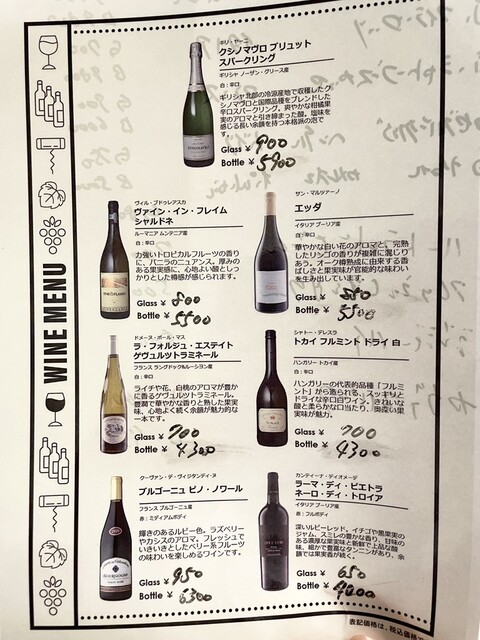 WINE MENU
キリ・ヤーニ
クシノマヴロ ブリュット
スパークリング
ギリシャ ノーザン・グリース産
白：辛口
ギリシャ北部の冷涼産地で収穫したク
シノマヴロと国際品種をブレンドした
辛口スパークリング。爽やかな柑橘果
実のアロマと引き締まった酸。塩味を
感じる長い余韻を持つ本格派の泡で
す。
Glass ¥ 900
Bottle ¥ 5900
ヴィル・ブドゥレアスカ
ヴァイン・イン・フレイム
シャルドネ
ルーマニア ムンテニア産
白：辛口
力強いトロピカルフルーツの香り
に、バニラのニュアンス。厚みの
ある果実感に、心地よい酸としっ
かりとした樽感が感じられます。
Glass ¥ 800
Bottle ¥ 5500
サン・マルツァーノ
エッダ
イタリア プーリア産
白：辛口
華やかな白い花のアロマと、完熟
したリンゴの香りが複雑に混じり
あう。オーク樽熟成に由来する香
ばしさと果実味が官能的な味わい
を生み出しています。
Glass ¥ 850
Bottle ¥ 5500
ドメーヌ・ポール・マス
ラ・フォルジュ・エステイト
ゲヴュルツトラミネール
フランス ラングドック&ルーション産
白：辛口
ライチや花、白桃のアロマが豊か
に香るゲヴュルツトラミネール。
豊潤で華やかな香りと熟した果実
味、心地よく続く余韻が魅力的な
一本です。
Glass ¥ 700
Bottle ¥ 4300
シャトー・デレスラ
トカイ フルミント ドライ 白
ハンガリー トカイ産
白：辛口
ハンガリーの代表的品種「フルミ
ント」から造られる、スッキリと
ドライな辛口白ワイン。きれいな
酸と柔らかな口当たり、奥深い果
実味が魅力。
Glass ¥ 700
Bottle ¥ 4300
クーヴァン・デ・ヴィジタンディーヌ
ブルゴーニュ ピノ・ノワール
フランス ブルゴーニュ産
赤：ミディアムボディ
輝きのあるルビー色。ラズベリー
やカシスのアロマ。フレッシュで
いきいきとしたベリー系フルーツ
の味わいを楽しめるワインです。
Glass ¥ 950
Bottle ¥ 6300
カンティーナ・ディオメーデ
ラーマ・ディ・ピエトラ
ネーロ・ディ・トロイア
イタリア プーリア産
赤：フルボディ
深いルビーレッド。イチゴや黒果実の
ジャム、スミレの豊かな香り、甘味の
ある濃厚な果実味と新鮮で上品な酸
味、細かで豊富なタンニンがあり、余
韻では果実香が続く。
Glass ¥ 650
Bottle ¥
表記価格は、税込価格